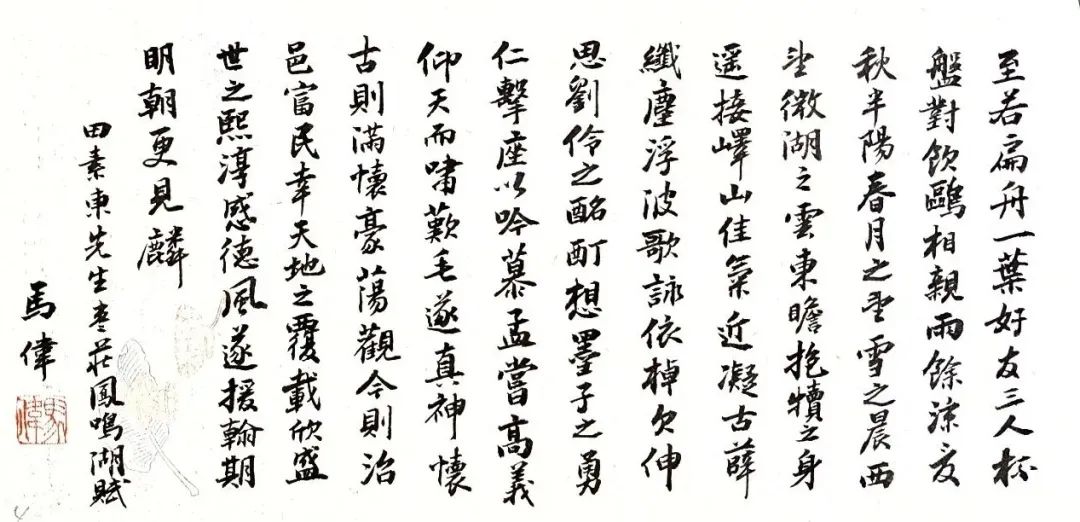 至若扁舟一葉好友三人杯
盤對飲鷗相親雨餘涼夏
秋半陽春月之望雪之晨西
望微湖之雲東瞻抱犢之身
遥接嶧山佳氣近凝古薛
纖塵浮波歌詠依棹欠伸
思劉伶之酩酊想墨子之勇
仁擊座以吟慕孟嘗高義
仰天而嘯歎毛遂真神懷
古則滿懷豪蕩觀今則治
邑富民幸天地之覆載欣盛
世之熙淳感德風遂援翰期
明朝更見麟
田素東先生枣莊鳳鳴湖賦
馬偉
馬偉